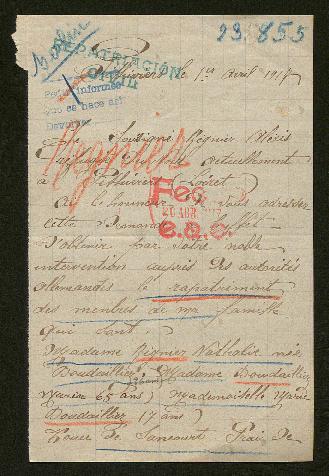 23.855
REPATRIACIÓN
CIVIL
Pedir informes
que se hace así
Devolver
Pithiviers le 1er Avril 1917
Régnier
Je Soussigné Régnier Alexis
actuellement
à Pithiviers (Loiret)
ai l'honneur de vous adresser
cette demande
d'obtenir par votre noble
intervention auprès des autorités
allemandes le rapatriement
des membres de ma famille
qui sont :
Madame Régnier Nathalie née
Boudaillier, Madame Boudaillier
65 ans) Mademoiselle Marie
Boudaillier (7 ans)
de Jancourt